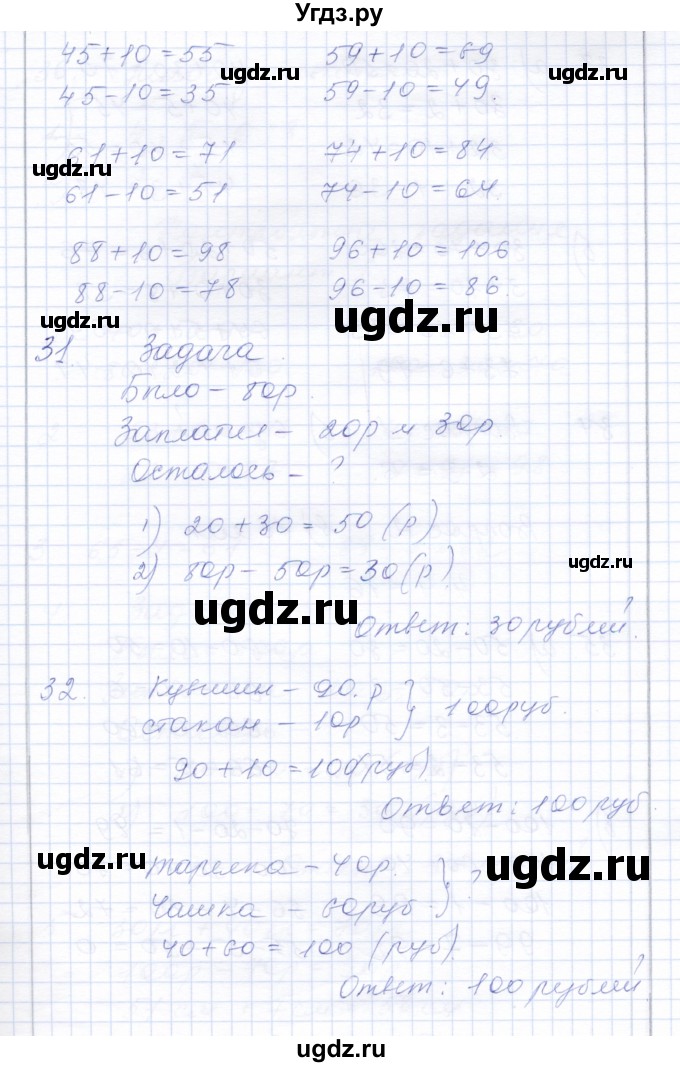 Угдз.ру
45+10=55 59+10=69
ugdz.ru ugdz.ru
45-10=35 59-10=49.
61+10=71 74+10=84
ugdz.ru
61-10=51 74-10=64.
ugdz.ru
88+10=98 96+10=106
88-10=78 96-10=86.
ugdz.ru
31. Задача.
Было - 80р.
Заплатил - 20р и 30р.
ugdz.ru
Осталось - ?
1) 20+30=50(р)
2) 80р-50р=30(р).
ugdz.ru
ugdz.ru
Ответ: 30рублей.
32. Кувшин - 90.р } 100руб.
стакан - 10р
ugdz.ru
90+10=100(руб)
Ответ: 100руб.
ugdz.ru ugdz.ru
тарелка - 40р. } ?
Чашка - 60руб.
40+60=100 (руб).
ugdz.ru
Ответ: 100 рублей.
ugdz.ru